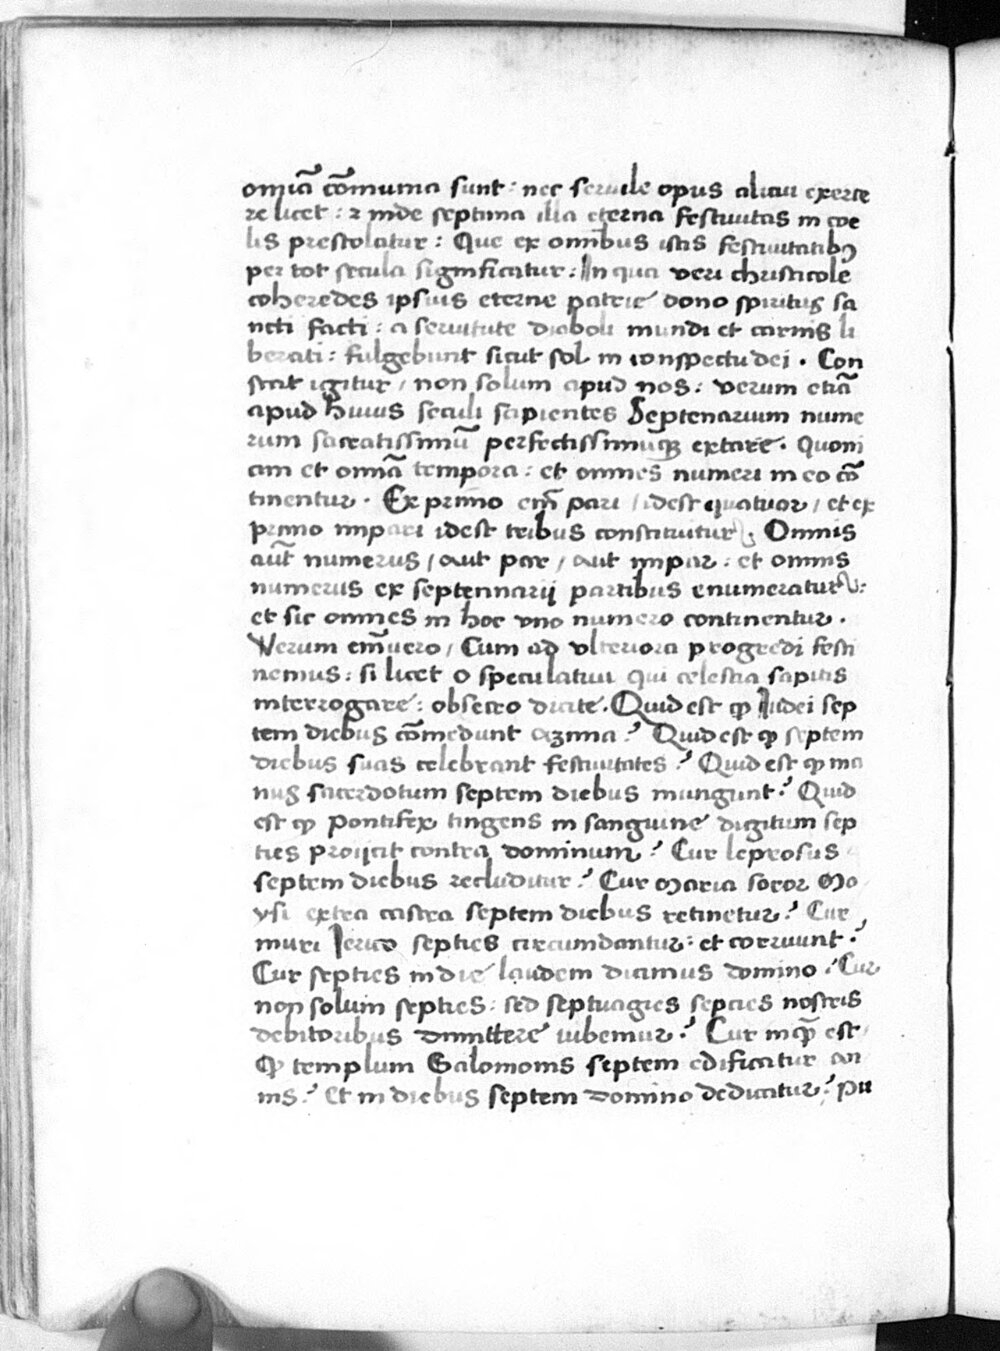 omĩa cõmunia sunt : nec seruile opus alicui exerce
re licet : ⁊ inde septima illa eterna festiuitas in coe
lis prestolatur : Que ex omnibus istis festiuitatibꝫ
per tot secula significatur : In qua veri christicole
coheredes ipsius eterne patrie dono spiritus sa
ncti facti : a seruitute diaboli mundi et carnis li
berati : fulgebunt sicut sol in conspectu dei . Con
stat igitur / non solum apud nos : verum etiã
apud huius seculi sapientes Septenarium nume
rum sacratissimũ perfectissimumqꝫ extare . Quoni
am et omnĩa tempora : et omnes numeri in eo cõ
tinentur . Ex primo em̃ pari / idest quatuor / et ex
primo impari idest tribus constituitur . Omnis
aut̃ numerus / aut par / aut impar : et omnis
numerus ex septennarij partibus enumeratur :
et sic omnes in hoc vno numero continentur .
Verum em̃uero / Cum ad vlteriora progredi festi
nemus : si licet o speculatiui qui celestia sapitis
interrogare : obsecro dicite . Quid est ꝙ Iudei sep
tem diebus cõmedunt azima ? Quid est ꝙ septem
diebus suas celebrant festiuitates ? Quid est ꝙ ma
nus sacerdotum septem diebus inungunt ? Quid
est ꝙ Pontifex tingens in sanguine digitum sep
ties proijcit contra dominum ? Cur leprosus
septem diebus recluditur ? Cur Maria soror Mo
ysi extra castra septem diebus retinetur ? Cur
muri Ierico septies circumdantur : et corruunt ?
Cur septies in die laudem dicimus domino ? Cur
non solum septies : sed septuagies septies nostris
debitoribus dimittere iubemur ? Cur inqꝫ est
ꝙ templum Salomonis septem edificatur an
nis ? Et in diebus septem domino dedicatur ? Pu